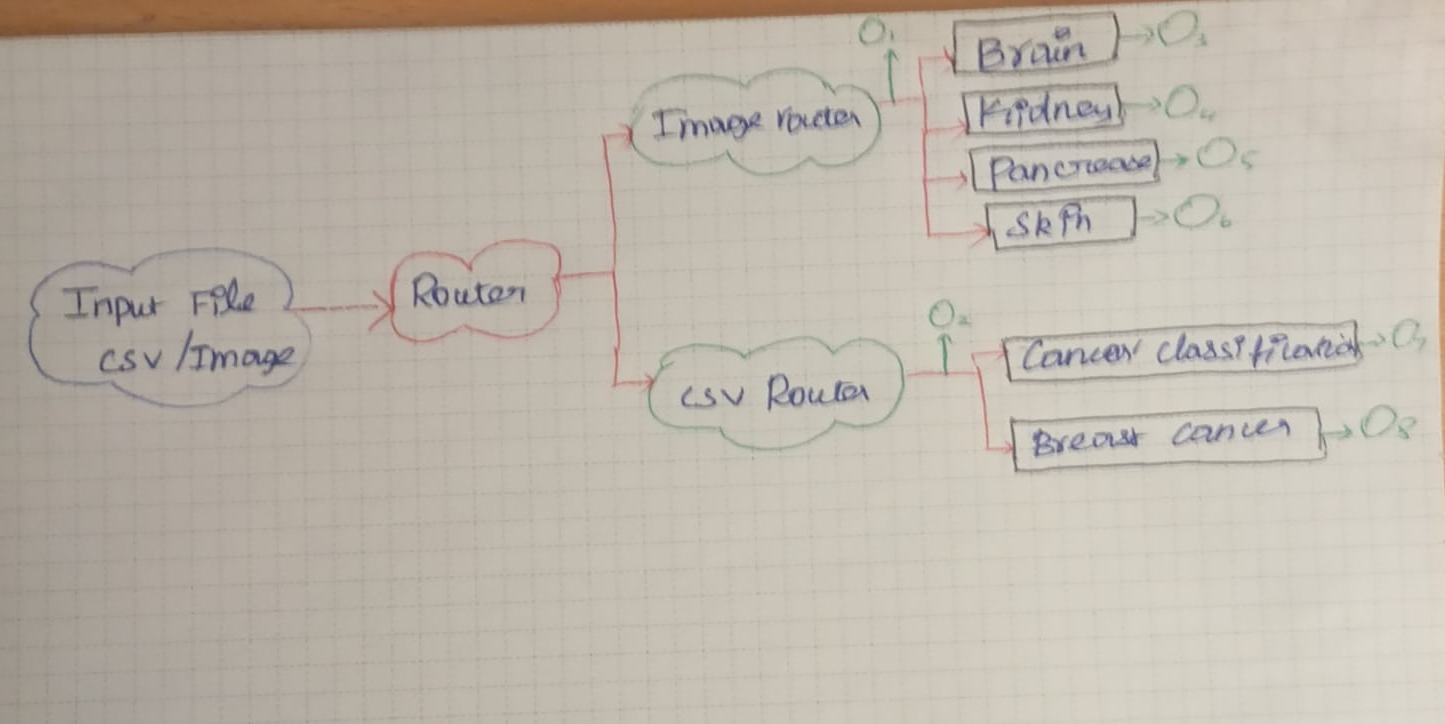 Input File
CSV/Image
Router
Image router
O1
Brain
O3
Kidney
O4
Pancrease
O5
Skin
O6
CSV Router
O2
Cancer classification
O7
Breast cancer
O8